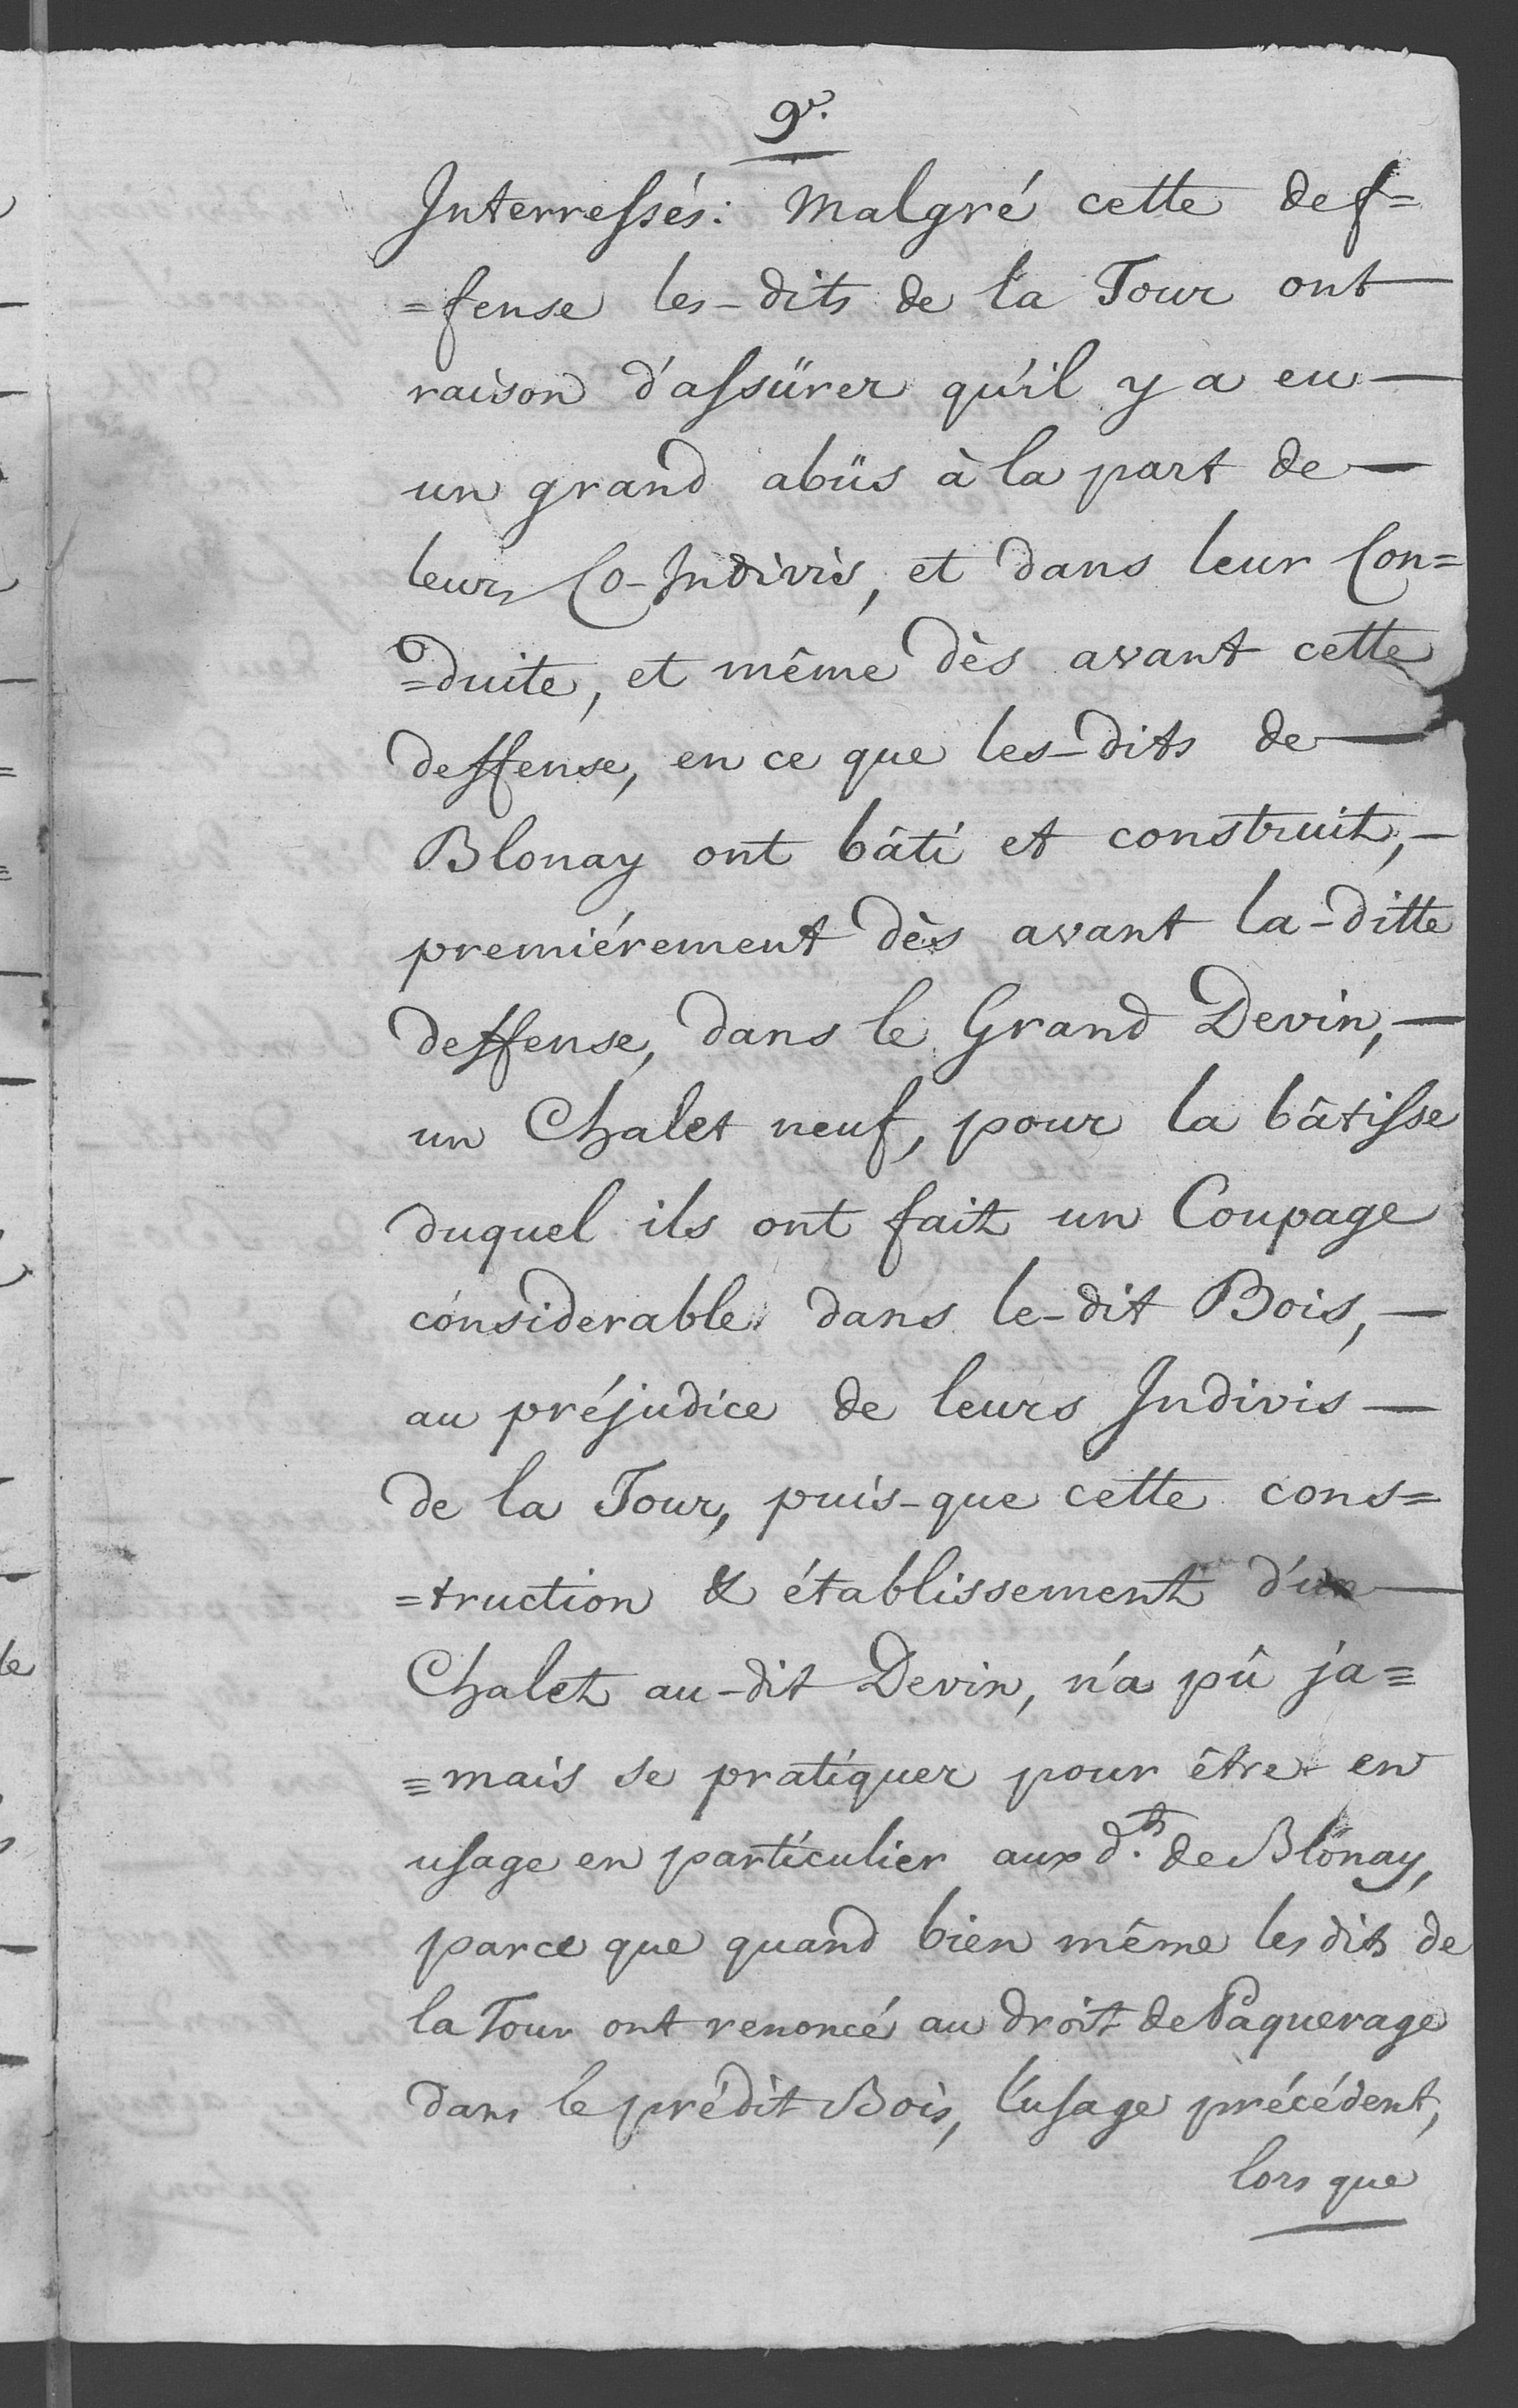 9e.
Interressés: Malgré cette def=
=fense les-dits de la Tour ont
raison d'assürer qu'il y a eu
un grand abüs à la part de
leurs Co-Indivis, et dans leur Con=
=duite, et même dès avant cette
deffense, en ce que les-dits de
Blonay ont bâti et construit,
premiérement dès avant la-ditte
deffense, dans le Grand Devin,
un Chalet neuf, pour la bâtisse
duquel ils ont fait un Coupage
considerable dans le-dit Bois,
au préjudice de leurs Indivis
de la Tour, puis-que cette cons=
=truction & établissement d'un
Chalet au-dit Devin, n'a pû ja=
=mais se pratiquer pour être en
usage en particulier aux dts. de Blonay,
parce que quand bien même les dits de
la Tour ont renoncé au droit de Paquerage
dans le prédit Bois, l'usage précédent,
lors que